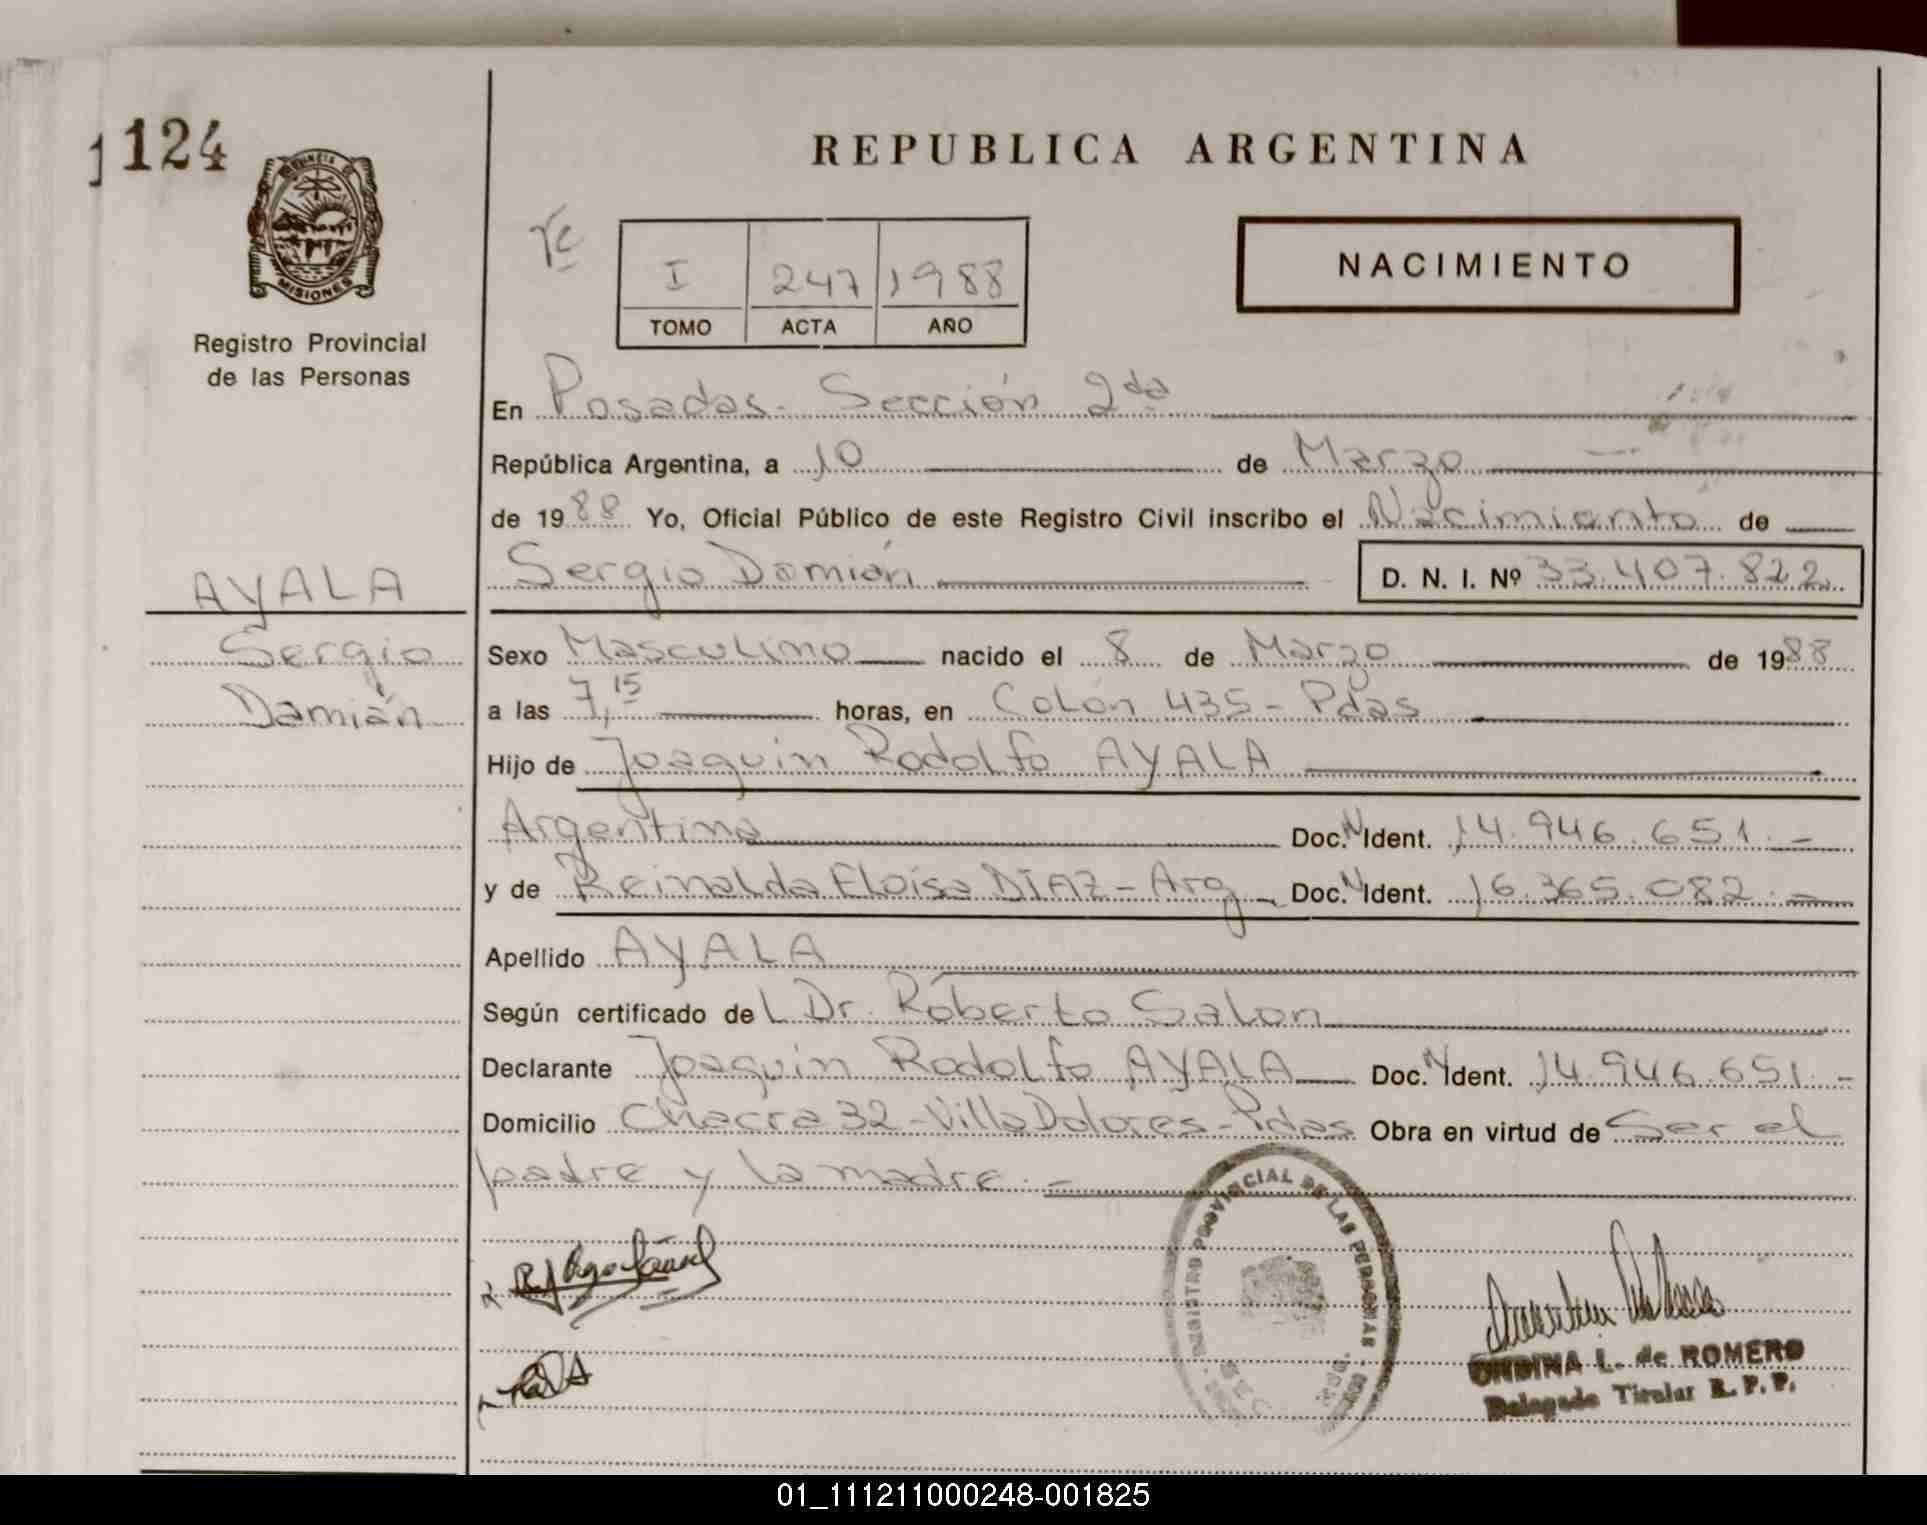 124
REPUBLICA ARGENTINA
PROVINCIA DE
MISIONES
Registro Provincial
de las Personas
I 247 1988
TOMO ACTA AÑO
NACIMIENTO
En Posadas. Sección 2da
República Argentina, a 10 de Marzo
de 1988 Yo, Oficial Público de este Registro Civil inscribo el Nacimiento de
Sergio Damián D. N. I. Nº 33.407.822
AYALA
Sergio
Damián
Sexo Masculino nacido el 8 de Marzo de 1988
a las 7,15 horas, en Colón 435 - Pdas
Hijo de Joaquin Rodolfo AYALA
Argentina Doc. N Ident. 14.946.651.-
y de Reinalda Eloisa DIAZ - Arg Doc. N Ident. 16.365.082.-
Apellido AYALA
Según certificado del Dr. Roberto Salon
Declarante Joaquin Rodolfo AYALA Doc. N Ident. 14.946.651.-
Domicilio Chacra 32 - Villa Dolores - Pdas Obra en virtud de Ser el
padre y la madre.-
REGISTRO PROVINCIAL DE LAS PERSONAS
ONDINA L. de ROMERO
Delegado Titular R. P. P.
01_111211000248-001825